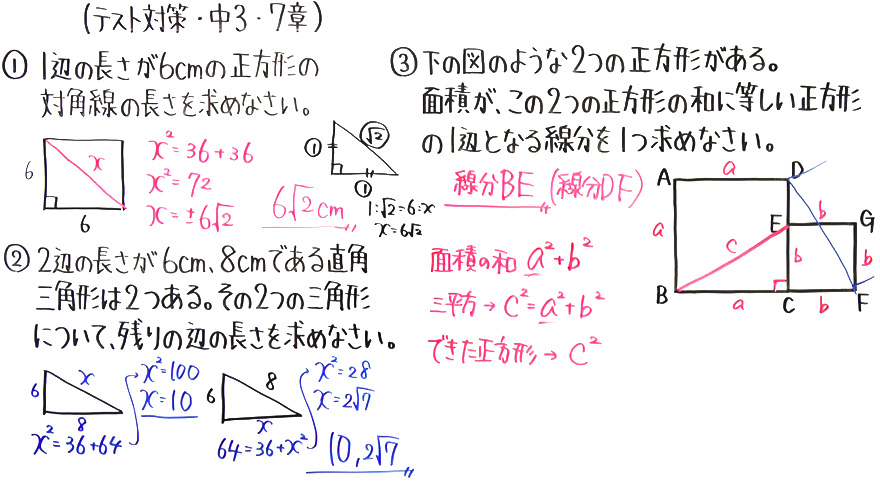 (テスト対策・中3・7章)
① 1辺の長さが6cmの正方形の
対角線の長さを求めなさい。
6
x
6
x²=36+36
x²=72
x=±6√2
6√2cm
①
√2
①
1:√2=6:x
x=6√2
② 2辺の長さが6cm、8cmである直角
三角形は2つある。その2つの三角形
について、残りの辺の長さを求めなさい。
6
x
8
x²=36+64
x²=100
x=10
6
8
x
64=36+x²
x²=28
x=2√7
10,2√7
③ 下の図のような2つの正方形がある。
面積が、この2つの正方形の和に等しい正方形
の1辺となる線分を1つ求めなさい。
線分BE (線分DF)
面積の和 a²+b²
三平方→C²=a²+b²
できた正方形→C²
A
a
D
a
E
b
G
c
b
b
B
a
C
b
F